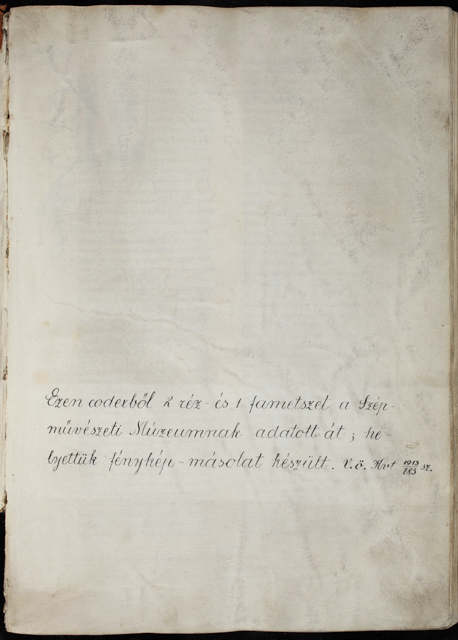 Ezen codexből 2 réz- és 1 fametszet a Szép-
művészeti Múzeumnak adatott át; he-
lyettük fénykép-másolat készült. V.ö. 1913 sz.